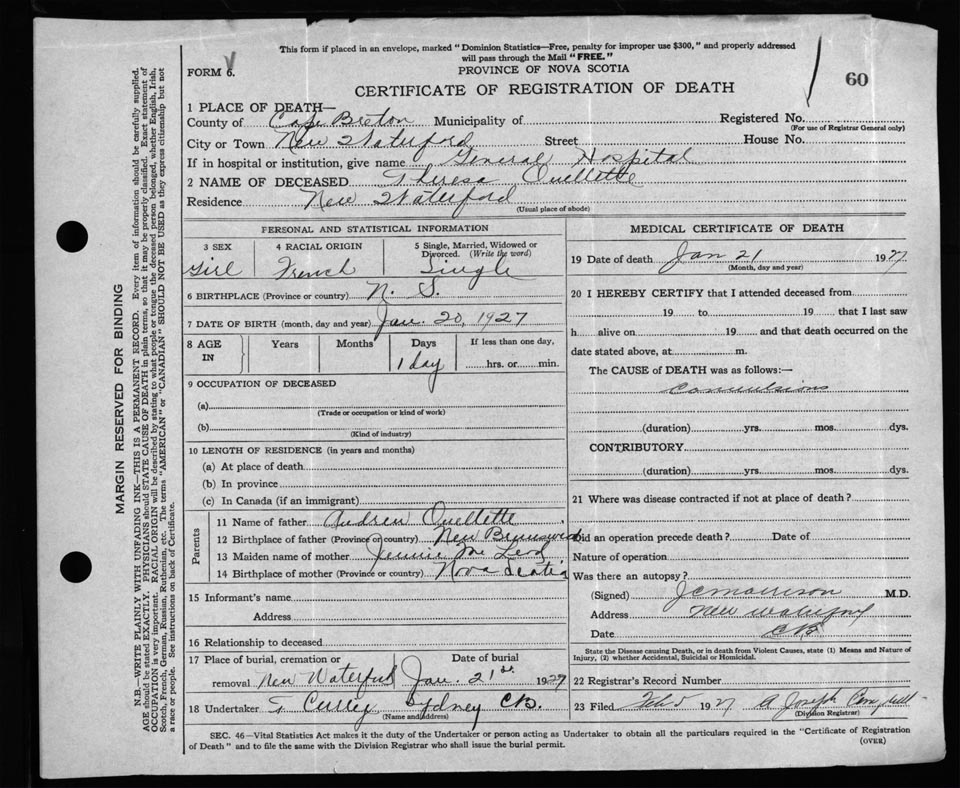 This form if placed in an envelope, marked "Dominion Statistics—Free, penalty for improper use $300," and properly addressed
will pass through the Mail "FREE."
FORM 6.
PROVINCE OF NOVA SCOTIA
60
CERTIFICATE OF REGISTRATION OF DEATH
1 PLACE OF DEATH—
County of Cape Breton Municipality of Registered No.
(For use of Registrar General only)
City or Town New Waterford Street House No.
If in hospital or institution, give name General Hospital
2 NAME OF DECEASED Theresa Ouellette
Residence New Waterford
(Usual place of abode)
PERSONAL AND STATISTICAL INFORMATION
3 SEX 4 RACIAL ORIGIN 5 Single, Married, Widowed or
Divorced. (Write the word)
Girl French Single
6 BIRTHPLACE (Province or country) N. S.
7 DATE OF BIRTH (month, day and year) Jan. 20, 1927
8 AGE
IN
Years Months Days If less than one day,
1 day hrs. or min.
9 OCCUPATION OF DECEASED
(a)
(Trade or occupation or kind of work)
(b)
(Kind of industry)
10 LENGTH OF RESIDENCE (in years and months)
(a) At place of death
(b) In province
(c) In Canada (if an immigrant)
Parents
11 Name of father Andrew Ouellette
12 Birthplace of father (Province or country) New Brunswick
13 Maiden name of mother Jennie McLeod
14 Birthplace of mother (Province or country) Nova Scotia
15 Informant's name
Address
16 Relationship to deceased
17 Place of burial, cremation or Date of burial
removal New Waterford Jan. 21st 1927
18 Undertaker F Curley Sydney CB.
(Name and address)
MEDICAL CERTIFICATE OF DEATH
19 Date of death Jan 21 1927
(Month, day and year)
20 I HEREBY CERTIFY that I attended deceased from
19 to 19 that I last saw
h alive on 19 and that death occurred on the
date stated above, at m.
The CAUSE of DEATH was as follows:—
Convulsions
(duration) yrs. mos. dys.
CONTRIBUTORY
(duration) yrs. mos. dys.
21 Where was disease contracted if not at place of death?
Did an operation precede death? Date of
Nature of operation
Was there an autopsy?
(Signed) JC Morrison M.D.
Address New Waterford
Date CB
State the Disease causing Death, or in death from Violent Causes, state (1) Means and Nature of
Injury, (2) whether Accidental, Suicidal or Homicidal.
22 Registrar's Record Number
23 Filed Feb 5 1927 A Joseph Campbell
(Division Registrar)
SEC. 46—Vital Statistics Act makes it the duty of the Undertaker or person acting as Undertaker to obtain all the particulars required in the "Certificate of Registration
of Death" and to file the same with the Division Registrar who shall issue the burial permit.
(OVER)
MARGIN RESERVED FOR BINDING
N.B.—WRITE PLAINLY WITH UNFADING INK—THIS IS A PERMANENT RECORD. Every item of information should be carefully supplied.
AGE should be stated EXACTLY. PHYSICIANS should STATE CAUSE OF DEATH in plain terms, so that it may be properly classified. Exact statement of
OCCUPATION is very important. RACIAL ORIGIN will be described by stating to what people or tongue the deceased person belonged, whether English, Irish,
Scotch, French, German, Russian, Ruthenian, etc. The terms "AMERICAN" or "CANADIAN" SHOULD NOT BE USED as they express citizenship but not
a race or people. See instructions on back of Certificate.